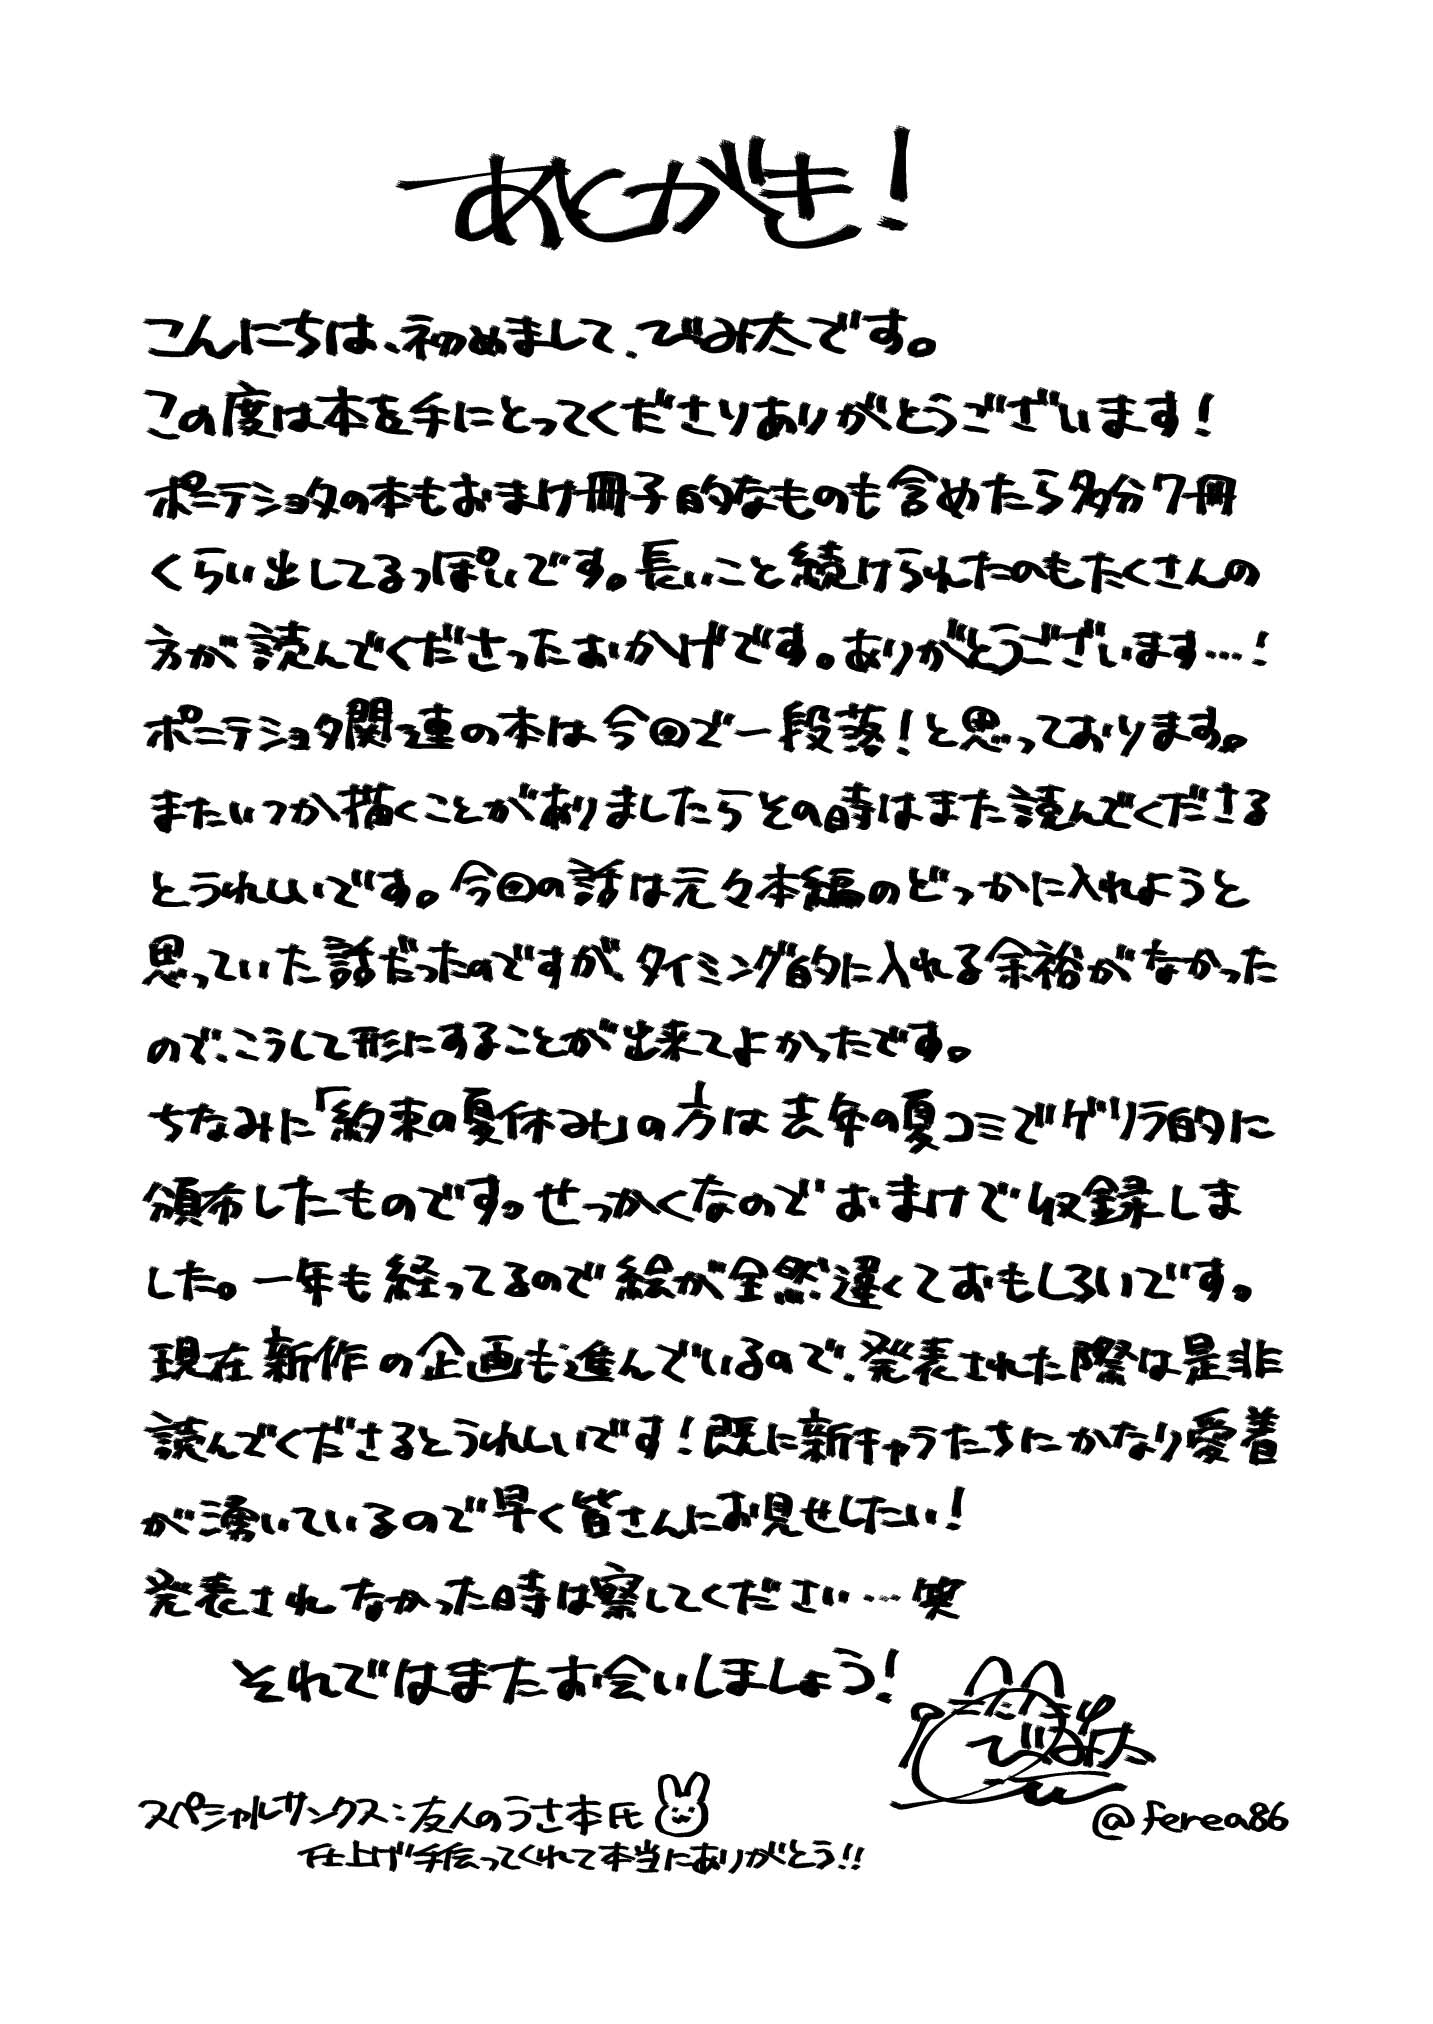 あとがき！
こんにちは、初めまして、びみ太です。
この度は本を手にとってくださりありがとうございます！
ポニテショタの本もおまけ冊子的なものも含めたら多分7冊
くらい出してるっぽいです。長いこと続けられたのもたくさんの
方が読んでくださったおかげです。ありがとうございます…！
ポニテショタ関連の本は今回で一段落！と思っております。
またいつか描くことがありましたらその時はまた読んでくださる
とうれしいです。今回の話は元々本編のどっかに入れようと
思っていた話だったのですが、タイミング的に入れる余裕がなかった
ので、こうして形にすることが出来てよかったです。
ちなみに「約束の夏休み」の方は去年の夏コミでゲリラ的に
頒布したものです。せっかくなのでおまけで収録しま
した。一年も経ってるので絵が全然違くておもしろいです。
現在新作の企画も進んでいるので、発表された際は是非
読んでくださるとうれしいです！既に新キャラたちにかなり愛着
が湧いているので早く皆さんにお見せしたい！
発表されなかった時は察してください…笑
それではまたお会いしましょう！
びみ太
@ferea86
スペシャルサンクス：友人のうさ本氏
仕上げ手伝ってくれて本当にありがとう!!